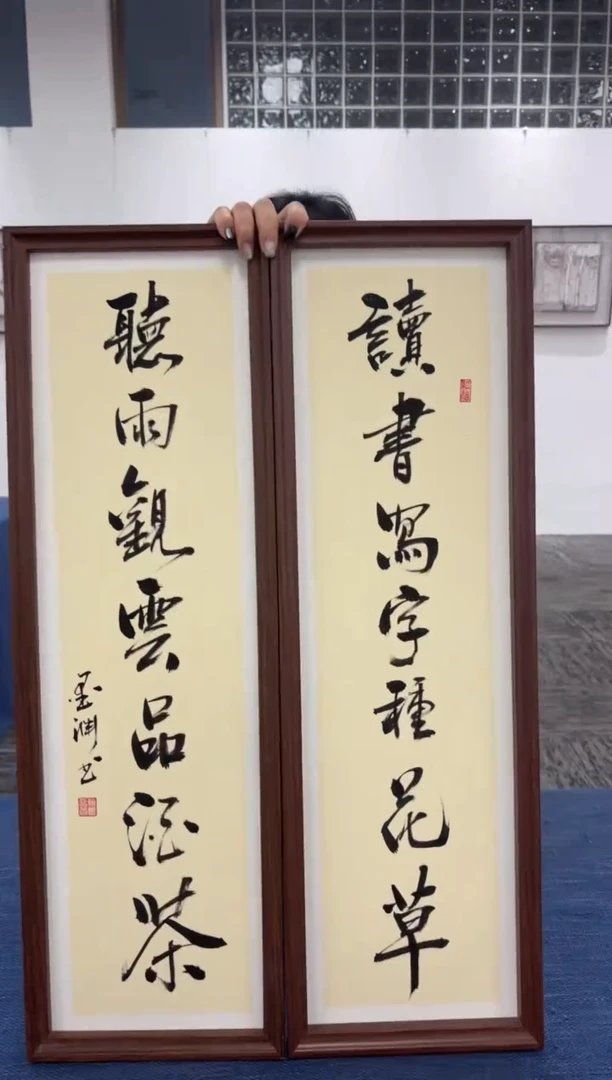 讀書寫字種花草
聽雨觀雲品酒茶
墨渊书